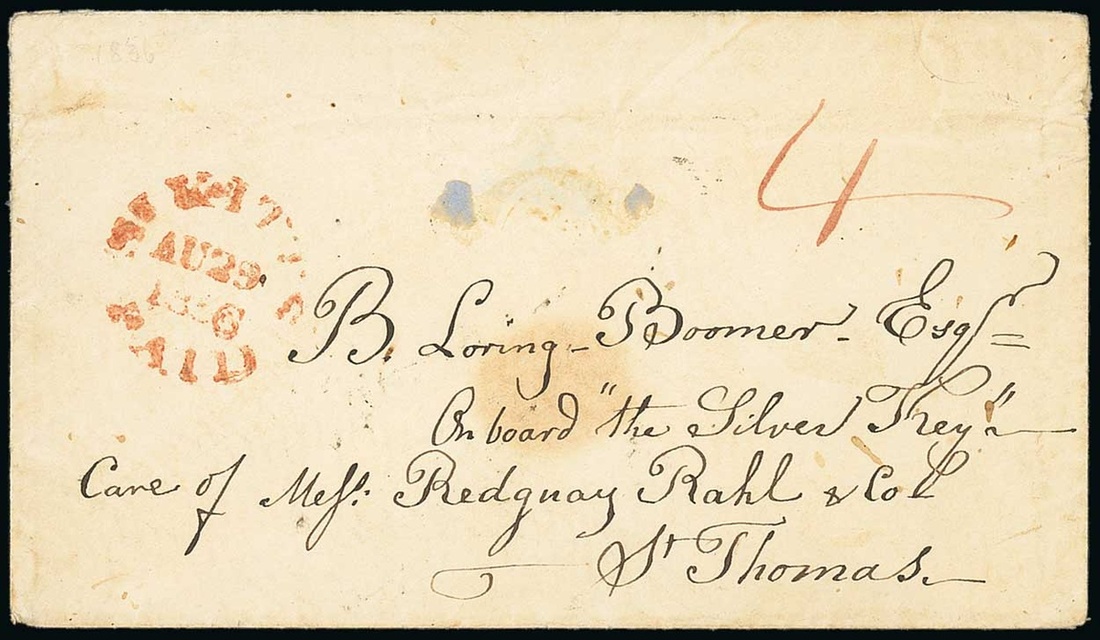 1836
4
ST KITT'S
AU29
1836
PAID
B. Loring - Boomer - Esqr
On board "the Silver Key"
Care of Messrs. Redguay Rahl & Co
St Thomas.